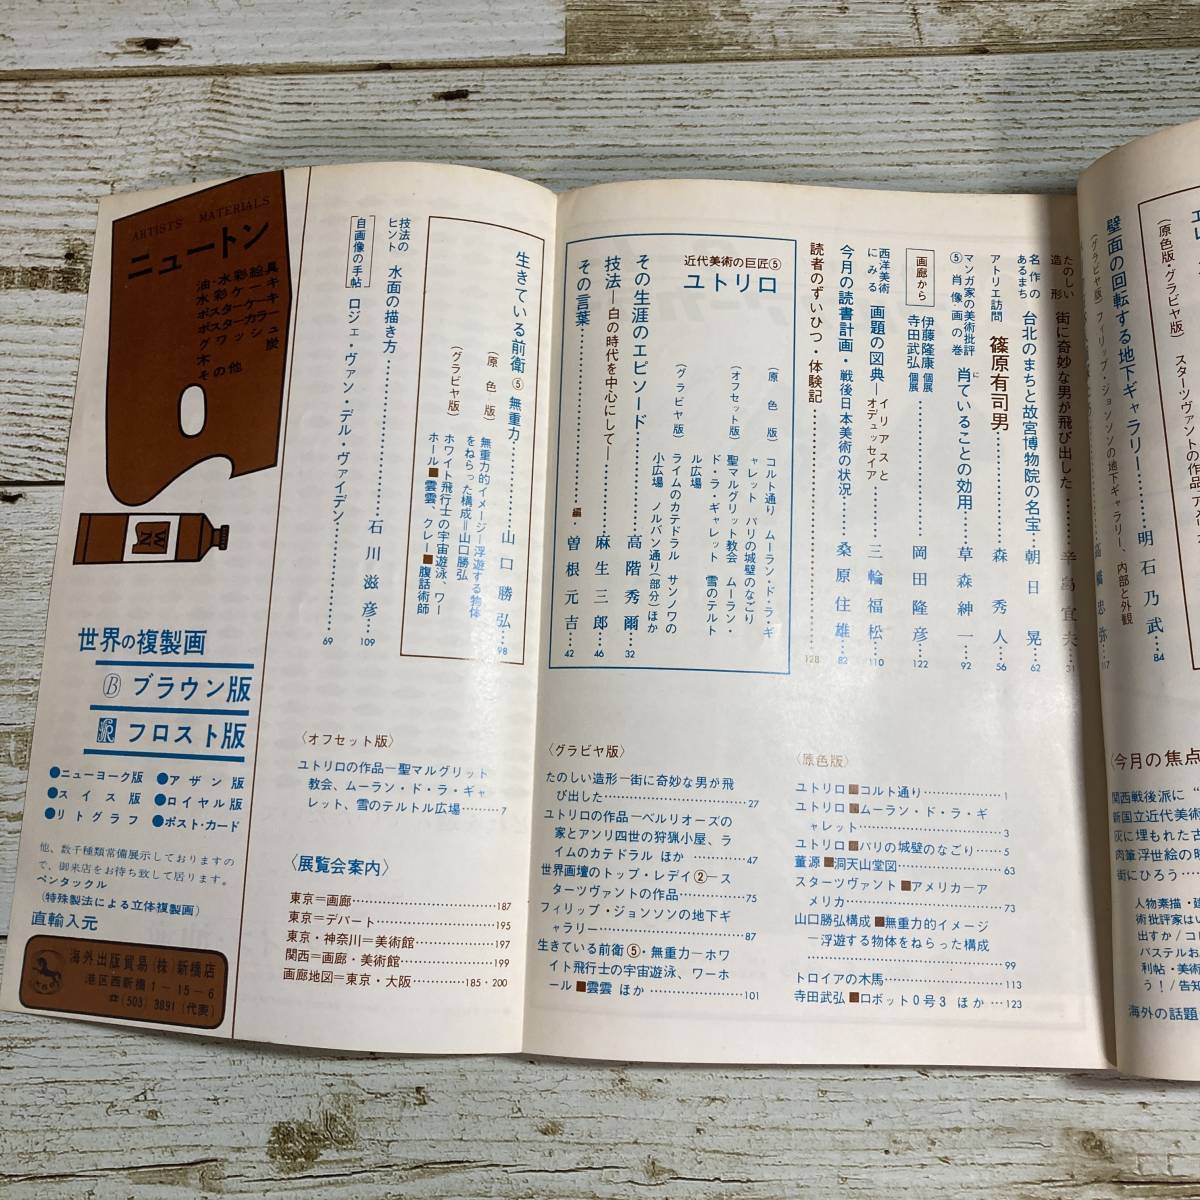 壁面の回転する地下ギャラリー……明石乃武…84
(グラビヤ版) フィリップ・ジョンソンの地下ギャラリー、内部と外観
(原色版・グラビヤ版) スターツヴァンの作品
高橋忠弥…117
たのしい造形 街に奇妙な男が飛び出した……辛島宜夫…31
名作のあるまち 台北のまちと故宮博物院の名宝…朝日晃…62
アトリエ訪問 篠原有司男……森秀人…56
マンガ家の美術批評⑤肖像画の巻 肖ていることの効用……草森紳一…92
画廊から 伊藤隆康個展 寺田武弘個展……岡田隆彦…122
西洋美術にみる 画題の図典―イリアスとオデュッセイア……三輪福松…110
今月の読書計画・戦後日本美術の状況……桑原住雄…82
読者のずいひつ・体験記……128
近代美術の巨匠⑤
ユトリロ
(原色版) コルト通り ムーラン・ド・ラ・ギャレット パリの城壁のなごり
(オフセット版) 聖マルグリット教会 ムーラン・ド・ラ・ギャレット 雪のテルトル広場
(グラビヤ版) ライムのカテドラル サンノワの小広場 ノルバン通り(部分)ほか
その生涯のエピソード……高階秀爾…32
技法―白の時代を中心にして―……麻生三郎…46
その言葉……編・曽根元吉…42
生きている前衛⑤無重力……山口勝弘…98
(原色版) 無重力的イメージ―浮遊する物体をねらった構成=山口勝弘
(グラビヤ版) ホワイト飛行士の宇宙遊泳、ワーホール■雲雲、クレー■腹話術師
技法のヒント 水面の描き方……石川滋彦…109
自画像の手帖 ロジェ・ヴァン・デル・ヴァイデン……69
〈今月の焦点
関西戦後派に“
新国立近代美術
灰に埋もれた古
肉筆浮世絵の
街にひろう……
海外の話題
〈原色版〉
ユトリロ■コルト通り……1
ユトリロ■ムーラン・ド・ラ・ギ
ャレット……3
ユトリロ■パリの城壁のなごり……5
董源■洞天山堂図……63
スターツヴァント■アメリカーア
メリカ……73
山口勝弘構成■無重力的イメージ
―浮遊する物体をねらった構成
……99
トロイアの木馬……113
寺田武弘■ロボット0号3 ほか…123
〈グラビヤ版〉
たのしい造形―街に奇妙な男が飛
び出した……27
ユトリロの作品―ベルリオーズの
家とアンリ四世の狩猟小屋、ラ
イムのカテドラル ほか……47
世界画壇のトップ・レデイ②―ス
ターツヴァントの作品……75
フィリップ・ジョンソンの地下ギ
ャラリー……87
生きている前衛⑤・無重力―ホワ
イト飛行士の宇宙遊泳、ワーホ
ール■雲雲 ほか……101
〈オフセット版〉
ユトリロの作品―聖マルグリット
教会、ムーラン・ド・ラ・ギャ
レット、雪のテルトル広場……7
〈展覧会案内〉
東京=画廊……187
東京=デパート……195
東京・神奈川=美術館……197
関西=画廊・美術館……199
画廊地図=東京・大阪……185・200
ARTISTS MATERIALS
ニュートン
油・水彩絵具
水彩ケーキ
ポスターケーキ
ポスターカラー
グワッシュ
木炭
その他
WN
世界の複製画
Ⓑ ブラウン版
フロスト版
●ニューヨーク版 ●アザン版
●スイス版 ●ロイヤル版
●リトグラフ ●ポスト・カード
他、数千種類常備展示しておりますの
で、御来店をお待ち致して居ります。
ペンタックル
(特殊製法による立体複製画)
直輸入元
海外出版貿易(株)新橋店
港区西新橋1-15-6
☎(503)3891(代表)